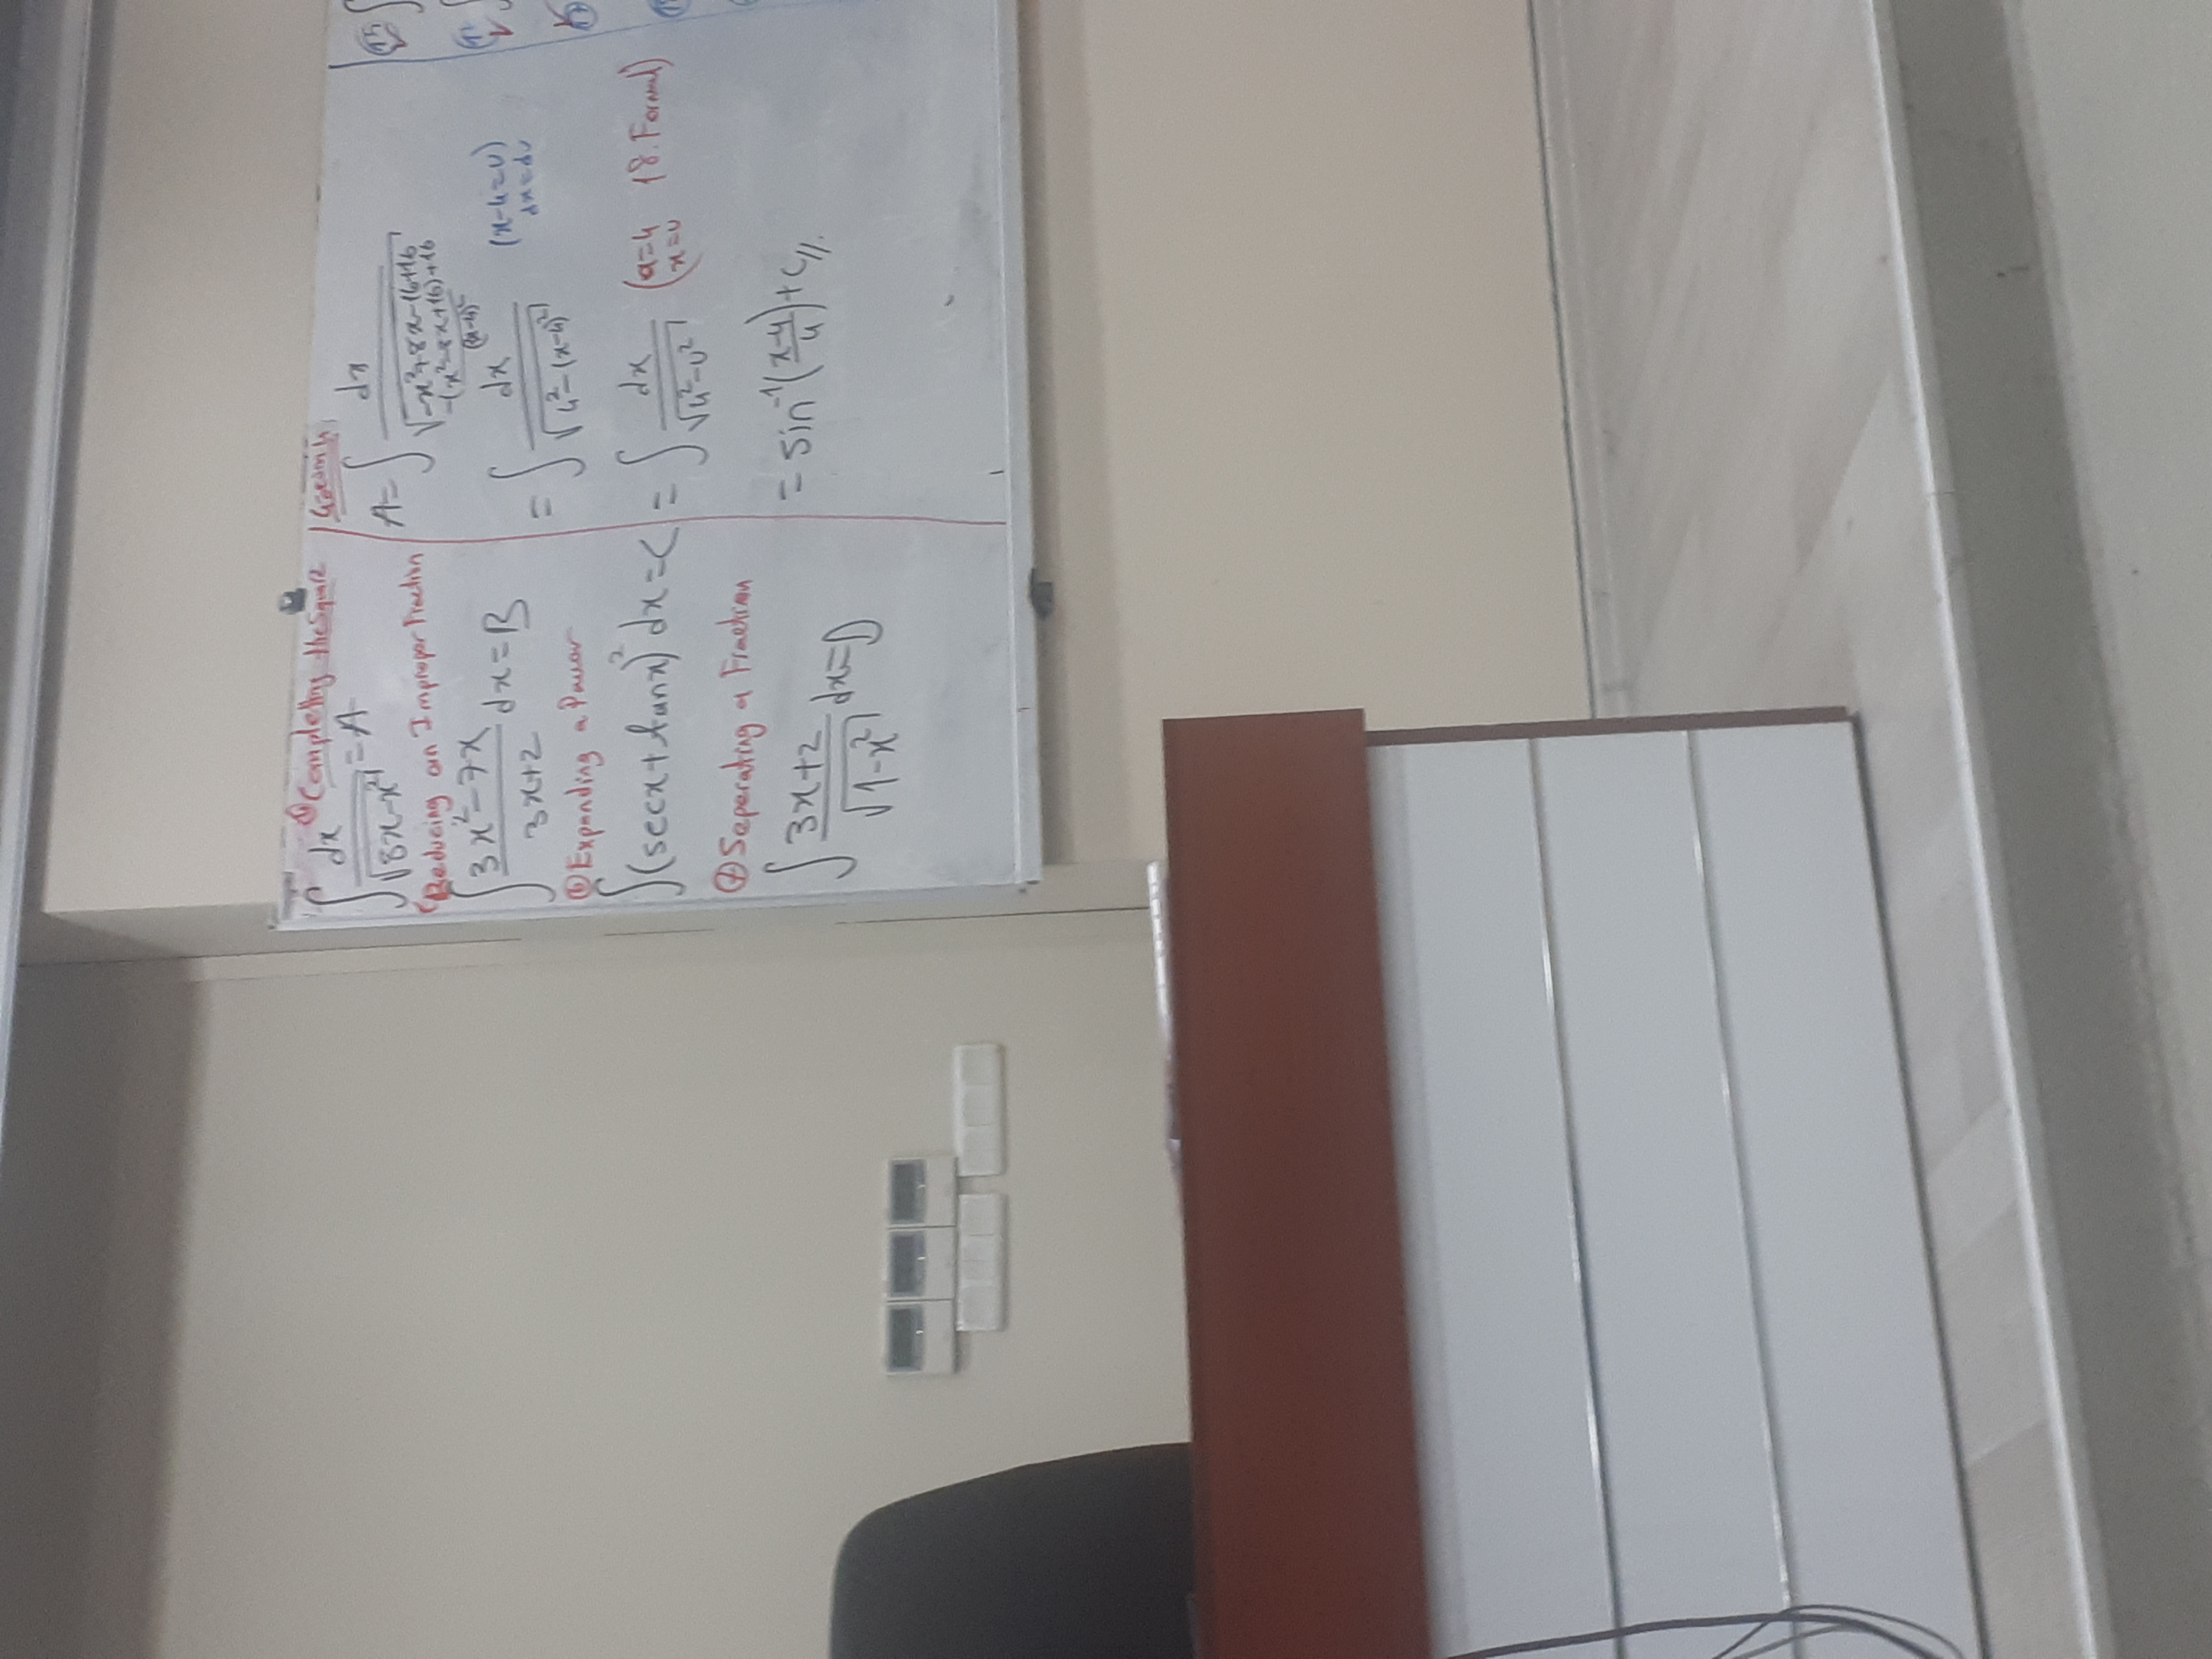 ④ Completing the Square
∫ dx / √(8x-x²) = A
Reducing an Improper Fraction
∫ (3x²-7x) / (3x+2) dx = B
⑥ Expanding a Power
∫ (secx+tanx)² dx = C
⑦ Seperating a Fraction
∫ (3x+2) / √(1-x²) dx = D
A = ∫ dx / √(-x²+8x-16+16)
-(x²-8x+16)+16
(x-4)²
= ∫ dx / √(4²-(x-4)²) (x-4=u)
dx=du
= ∫ dx / √(4²-u²) (a=4 18.Formul)
x=u
= sin⁻¹((x-4)/4)+c//.